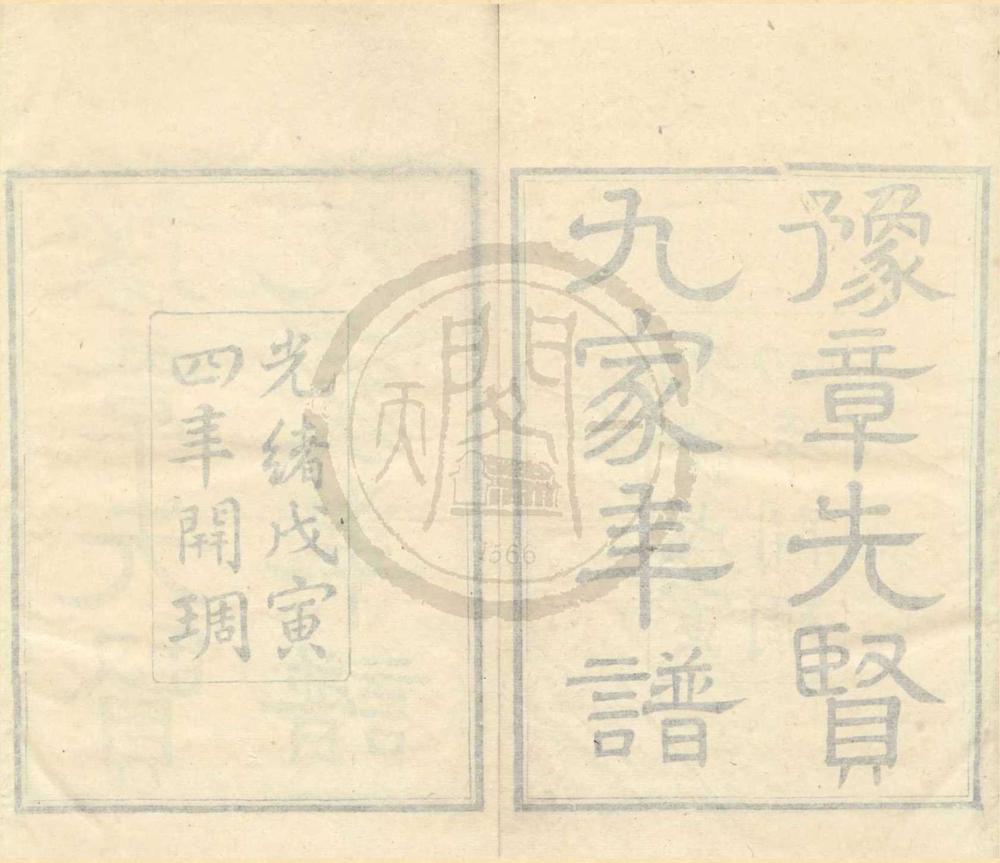 豫章先賢
九家年譜
光緒戊寅
四年開琱
天一閣
1566